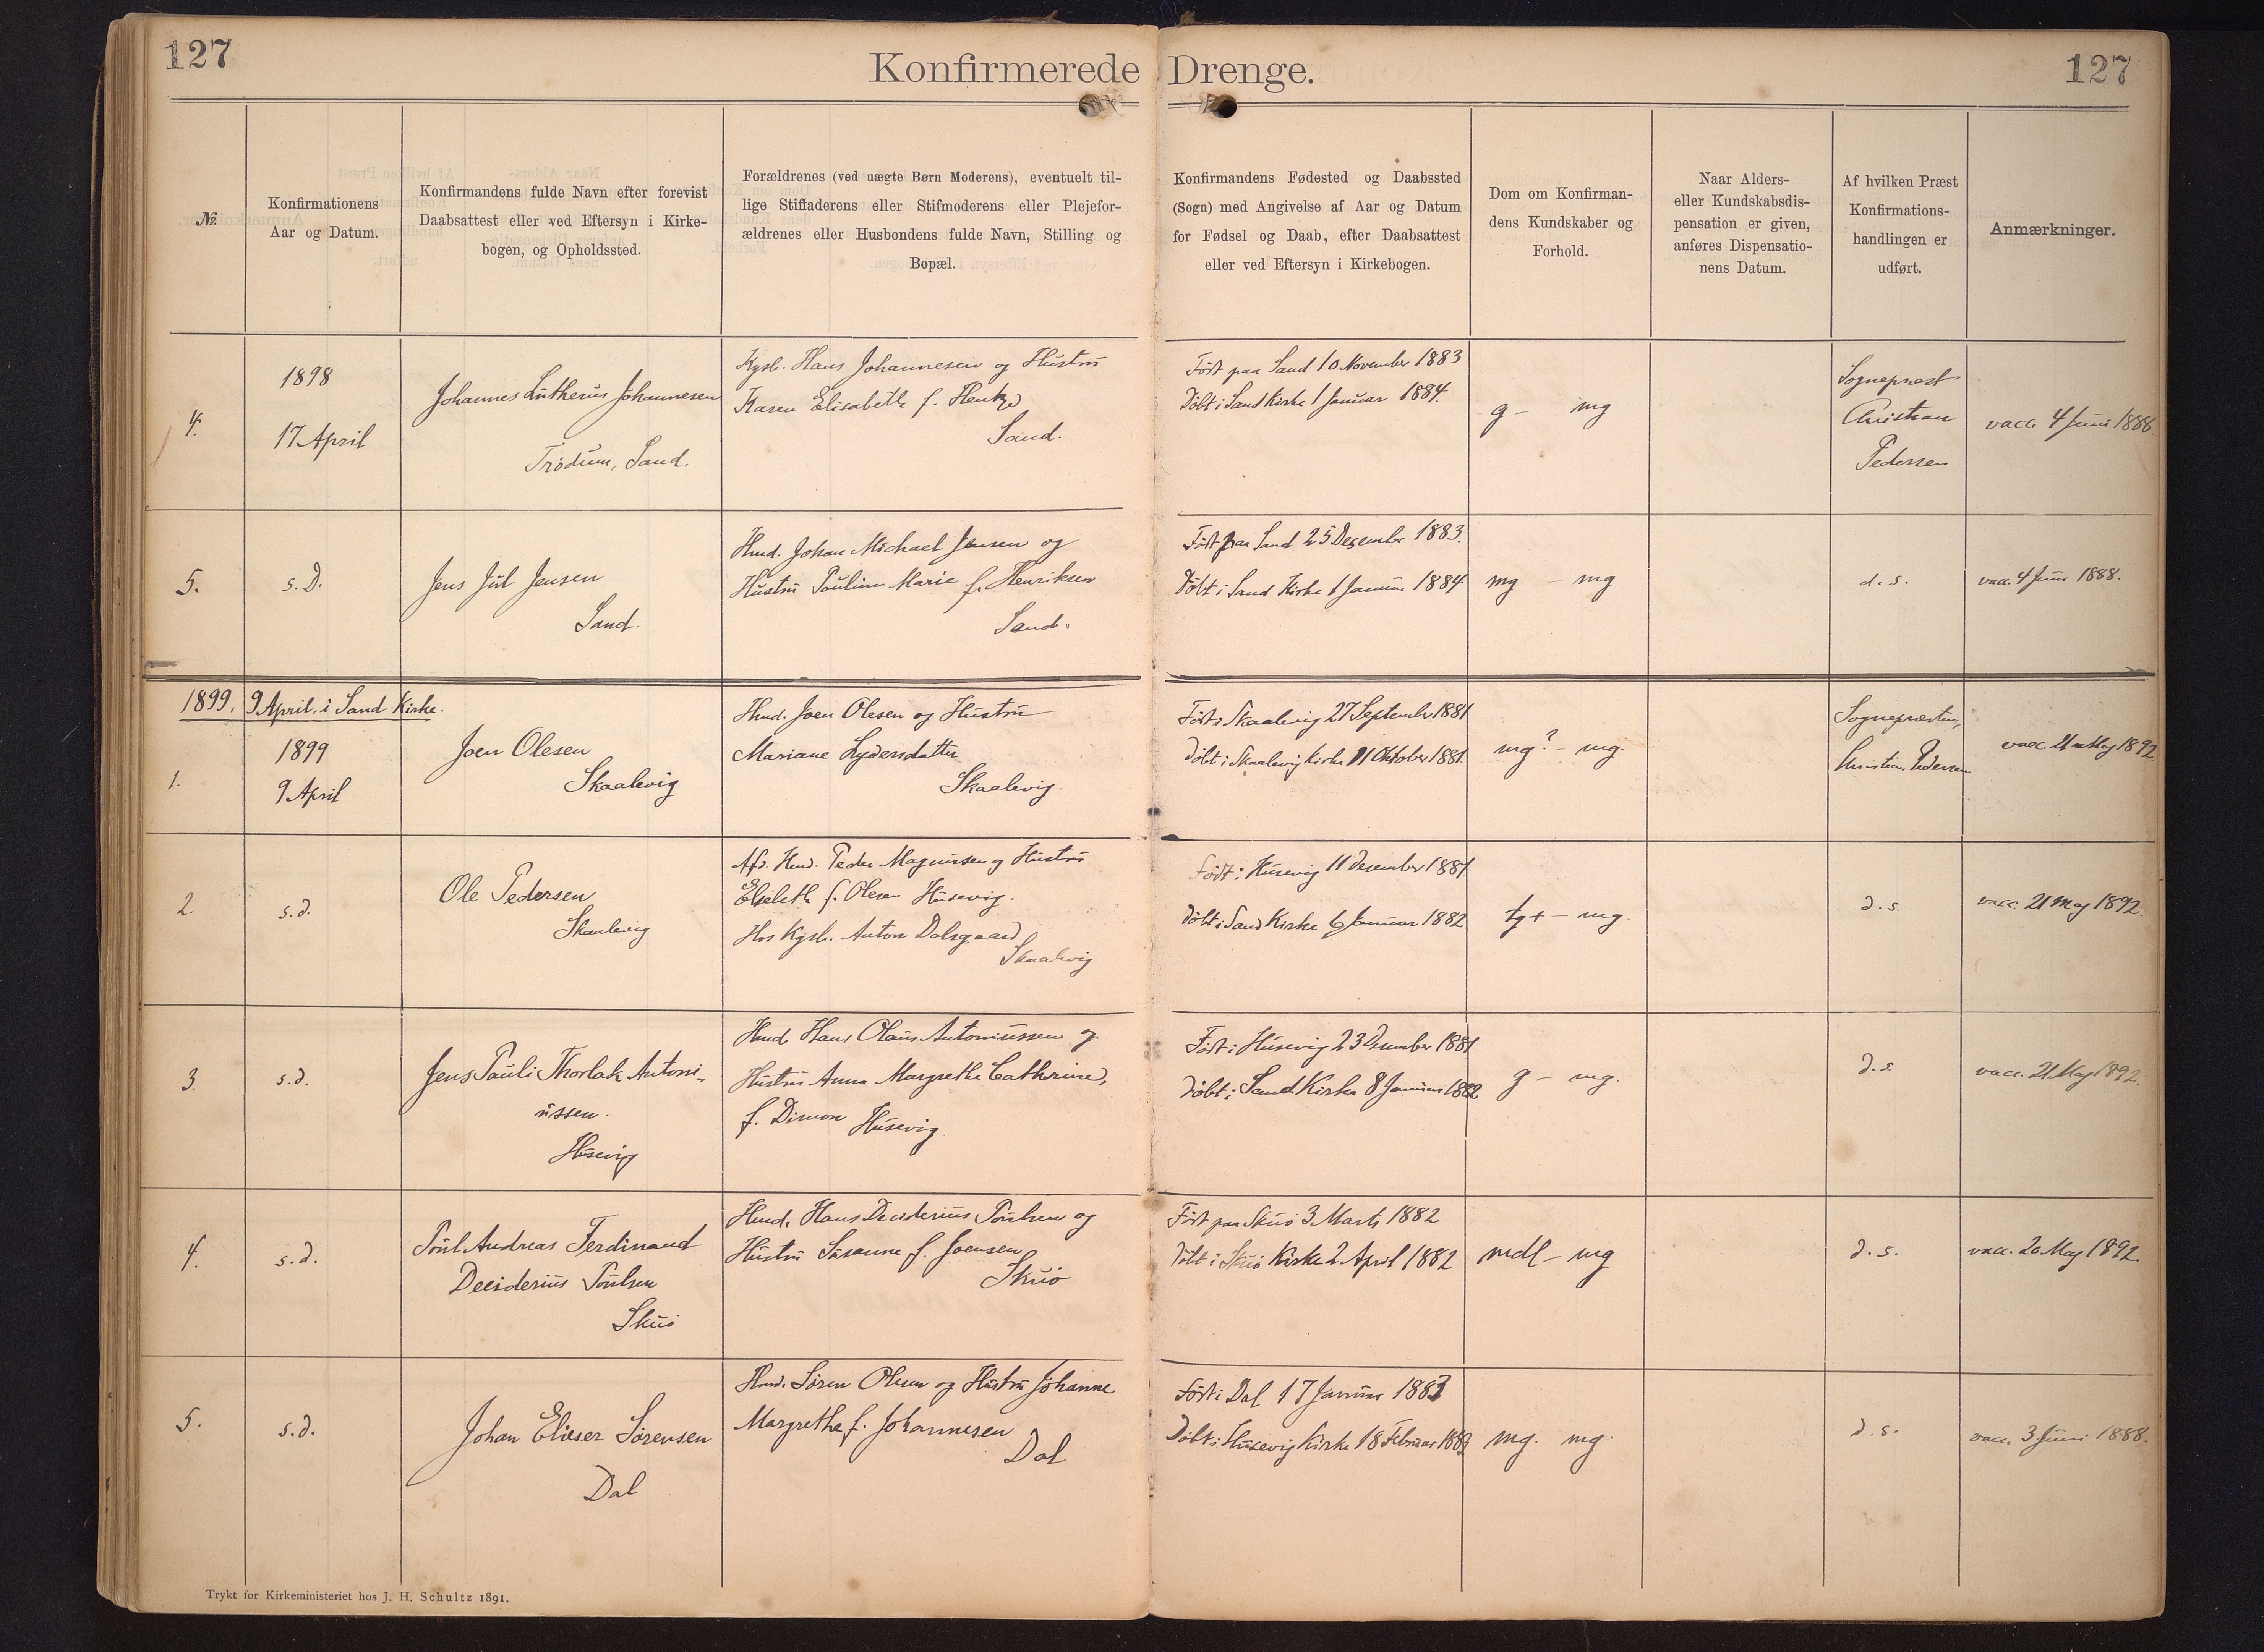 127
Konfirmerede Drenge.
127
№
Konfirmationens
Aar og Datum.
Konfirmandens fulde Navn efter forevist
Daabsattest eller ved Eftersyn i Kirke-
bogen, og Opholdssted.
Forældrenes (ved uægte Børn Moderens), eventuelt til-
lige Stiffaderens eller Stifmoderens eller Plejefor-
ældrenes eller Husbondens fulde Navn, Stilling og
Bopæl.
Konfirmandens Fødested og Daabssted
(Sogn) med Angivelse af Aar og Datum
for Fødsel og Daab, efter Daabsattest
eller ved Eftersyn i Kirkebogen.
Dom om Konfirman-
dens Kundskaber og
Forhold.
Naar Alders-
eller Kundskabsdis-
pensation er given,
anføres Dispensatio-
nens Datum.
Af hvilken Præst
Konfirmations-
handlingen er
udført.
Anmærkninger.
4.
1898
17 April
Johannes Lutherus Johannesen
Trødum, Sand.
Kgsb. Hans Johannesen og Hustru
Karen Elisabeth f. Hentze
Sand.
Født paa Sand 10 November 1883
Døbt i Sand Kirke 1 Januar 1884.
g - mg
Sognepræst
Christian
Pedersen
vacc. 4 Juni 1888.
5.
s. D.
Jens Jul Jensen
Sand.
Hmd. Johan Michael Jensen og
Hustru Pouline Marie f. Henriksen
Sand.
Født paa Sand 25 December 1883.
Døbt i Sand Kirke 1 Januar 1884
mg - mg
d. s.
vacc. 4 Juni 1888.
1899. 9 April, i Sand Kirke.
1.
1899
9 April
Joen Olesen
Skaalevig
Hmd. Joen Olesen og Hustru
Mariane Lydersdatter
Skaalevig.
Født i Skaalevig 27 September 1881
Døbt i Skaalevig Kirke 11 Oktober 1881.
mg? - mg.
Sognepræsten,
Christian Pedersen
vacc. 21 Maj 1892
2.
s.d.
Ole Pedersen
Skaalevig
Afd. Hmd. Peder Magnussen og Hustru
Elsebeth f. Olesen Husevig.
Hos Kgsb. Anton Dalsgaard
Skaalevig
Født i Husevig 11 December 1881
Døbt i Sand Kirke 6 Januar 1882.
tg+ - mg.
d. s.
vacc. 21 Maj 1892.
3.
s.d.
Jens Pauli Thorlak Antoni-
ussen.
Husevig
Hmd. Hans Olaus Antoniussen og
Hustru Anna Margrethe Cathrine,
f. Dimon Husevig.
Født i Husevig 23 December 1881
Døbt i Sand Kirke 8 Januar 1882
g - mg.
d. s
vacc. 21 Maj 1892.
4.
s.d.
Poul Andreas Ferdinand
Deciderius Poulsen
Skuø
Hmd. Hans Deciderius Poulsen og
Hustru Susanne f. Joensen
Skuø
Født paa Skuø 3 Marts 1882
Døbt i Skuø Kirke 2 April 1882
mdl - mg
d. s.
vacc. 20 Maj 1892.
5.
s.d.
Johan Elieser Sørensen
Dal
Hmd. Søren Olesen og Hustru Johanne
Margrethe f. Johannesen
Dal
Født i Dal 17 Januar 1883
Døbt i Husevig Kirke 18 Februar 1883
mg. mg.
d. s.
vacc. 3 Juni 1888.
Trykt for Kirkeministeriet hos J. H. Schultz 1891.